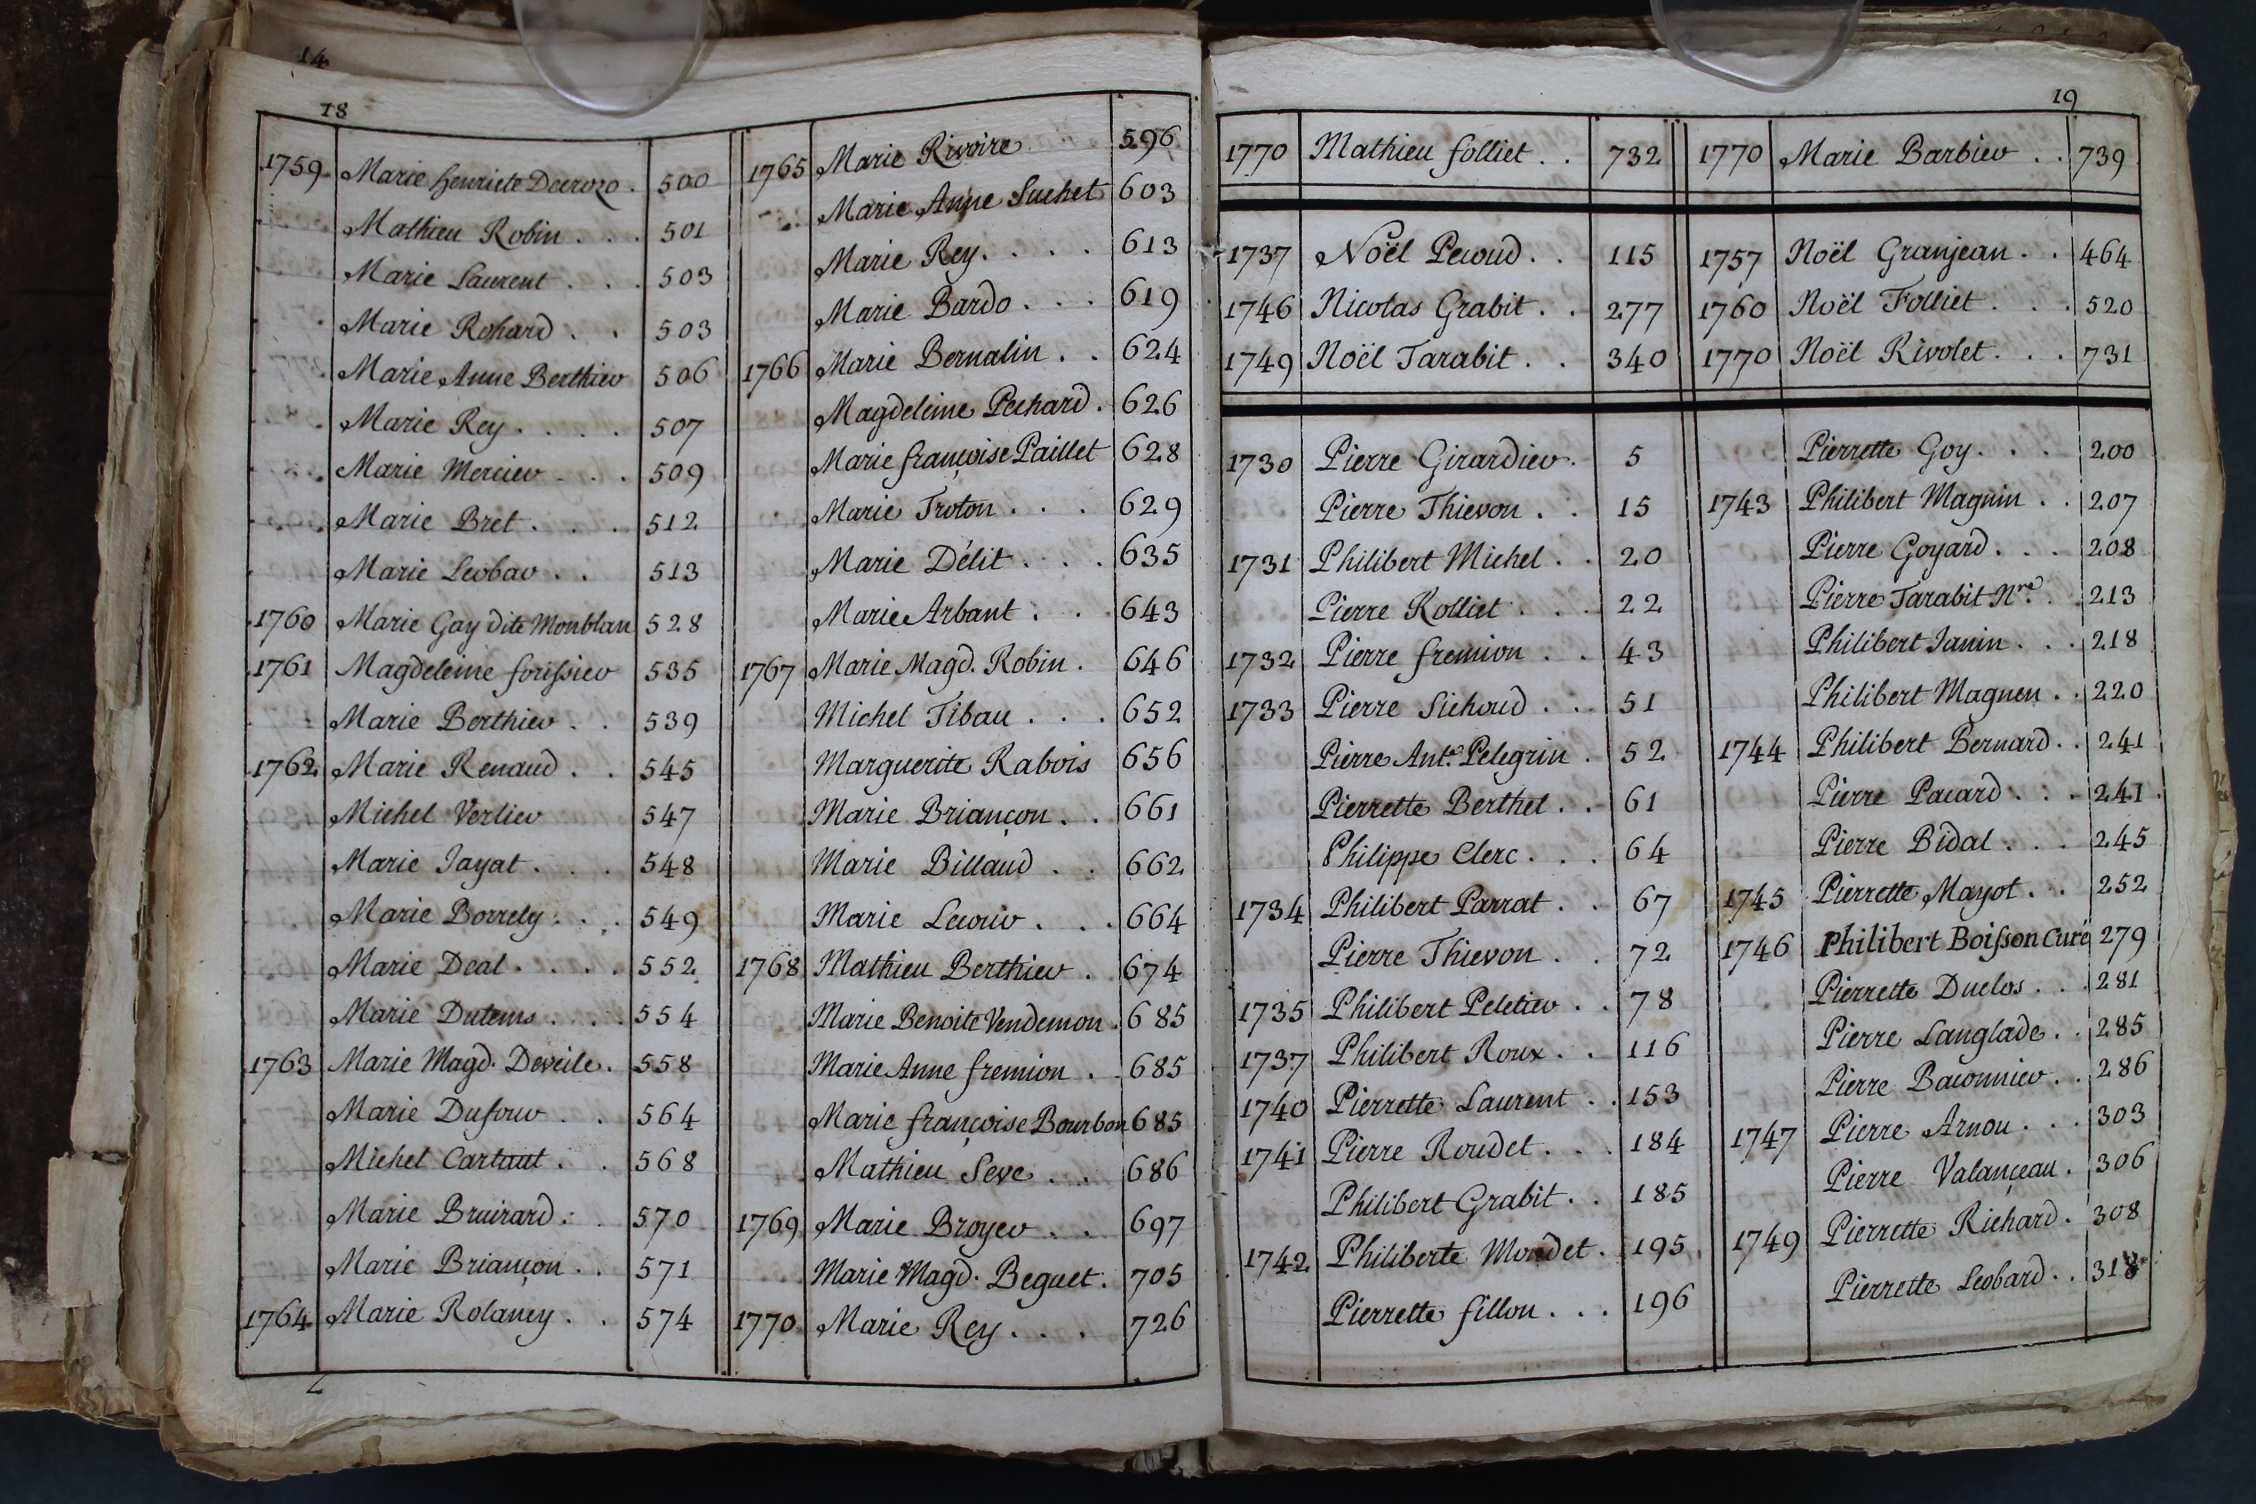 14
18
1759 Marie henriete Decrozo . 500
Mathieu Robin . . . 501
Marie Laurent . . . 503
Marie Rohard . . 503
Marie Anne Berthier 506
Marie Rey . . . . 507
Marie Mercier . . . 509
Marie Bret . . . 512
Marie Leobar . . 513
1760 Marie Gay dite Monblan 528
1761 Magdeleine forissier 535
Marie Berthier . . 539
1762 Marie Renaud . . 545
Michel Verlier 547
Marie Jayat . . . 548
Marie Borrely . . . 549
Marie Deal . . . . 552
Marie Dutems . . . 554
1763 Marie Magd. Deveile . 558
Marie Dufour . . 564
Michel Cartaut . . 568
Marie Bruirard . . 570
Marie Briançon . . 571
1764 Marie Rolancy . . 574
1765 Marie Rivoire 596
Marie Anne Suchet 603
Marie Rey . . . . 613
Marie Bardo . . . 619
1766 Marie Bernalin . . 624
Magdeleine Pechard . 626
Marie françoise Paillet 628
Marie Troton . . . 629
Marie Délit . . . . 635
Marie Arbant . . . 643
1767 Marie Magd. Robin . 646
Michel Tibau . . . 652
Marguerite Rabois 656
Marie Briançon . . 661
Marie Billaud . . 662
Marie Lecour . . . 664
1768 Mathieu Berthier . 674
Marie Benoite Vendemon . 685
Marie Anne fremion . 685
Marie françoise Bourbon 685
Mathieu Seve . . . 686
1769 Marie Broyer . . 697
Marie Magd. Beguet . 705
1770 Marie Rey . . . 726
19
1770 Mathieu folliet . . 732
1770 Marie Barbier . . 739
1737 Noël Pecoud . . 115
1746 Nicolas Grabit . . 277
1749 Noël Tarabit . . 340
1757 Noël Granjean . . 464
1760 Noël Folliet . . . 520
1770 Noël Rivolet . . . 731
1730 Pierre Girardier . 5
Pierre Thievon . . 15
1731 Philibert Michel . . 20
Pierre Rolliet . . . 22
1732 Pierre fremion . . 43
1733 Pierre Sichoud . . . 51
Pierre Ant.e Pelegrin . 52
Pierrette Berthet . . 61
Philippe Clerc . . . 64
1734 Philibert Parrat . . 67
Pierre Thievon . . 72
1735 Philibert Peletier . . 78
1737 Philibert Roux . . 116
1740 Pierrette Laurent . . 153
1741 Pierre Roudet . . . 184
Philibert Grabit . . 185
1742 Philiberte Mondet . 195
Pierrette fillon . . . 196
Pierrette Goy . . . 200
1743 Philibert Magnin . . 207
Pierre Goyard . . . 208
Pierre Tarabit Nre . 213
Philibert Janin . . . 218
Philibert Magnen . . 220
1744 Philibert Bernard . . 241
Pierre Pacard . . . 241
Pierre Bidal . . . 245
1745 Pierrette Mayot . . 252
1746 Philibert Boisson Curé 279
Pierrette Duclos . . . 281
Pierre Langlade . . 285
Pierre Baconnier . . 286
1747 Pierre Arnou . . . 303
Pierre Valançeau . 306
1749 Pierrette Richard . 308
Pierrette Leobard . . 318